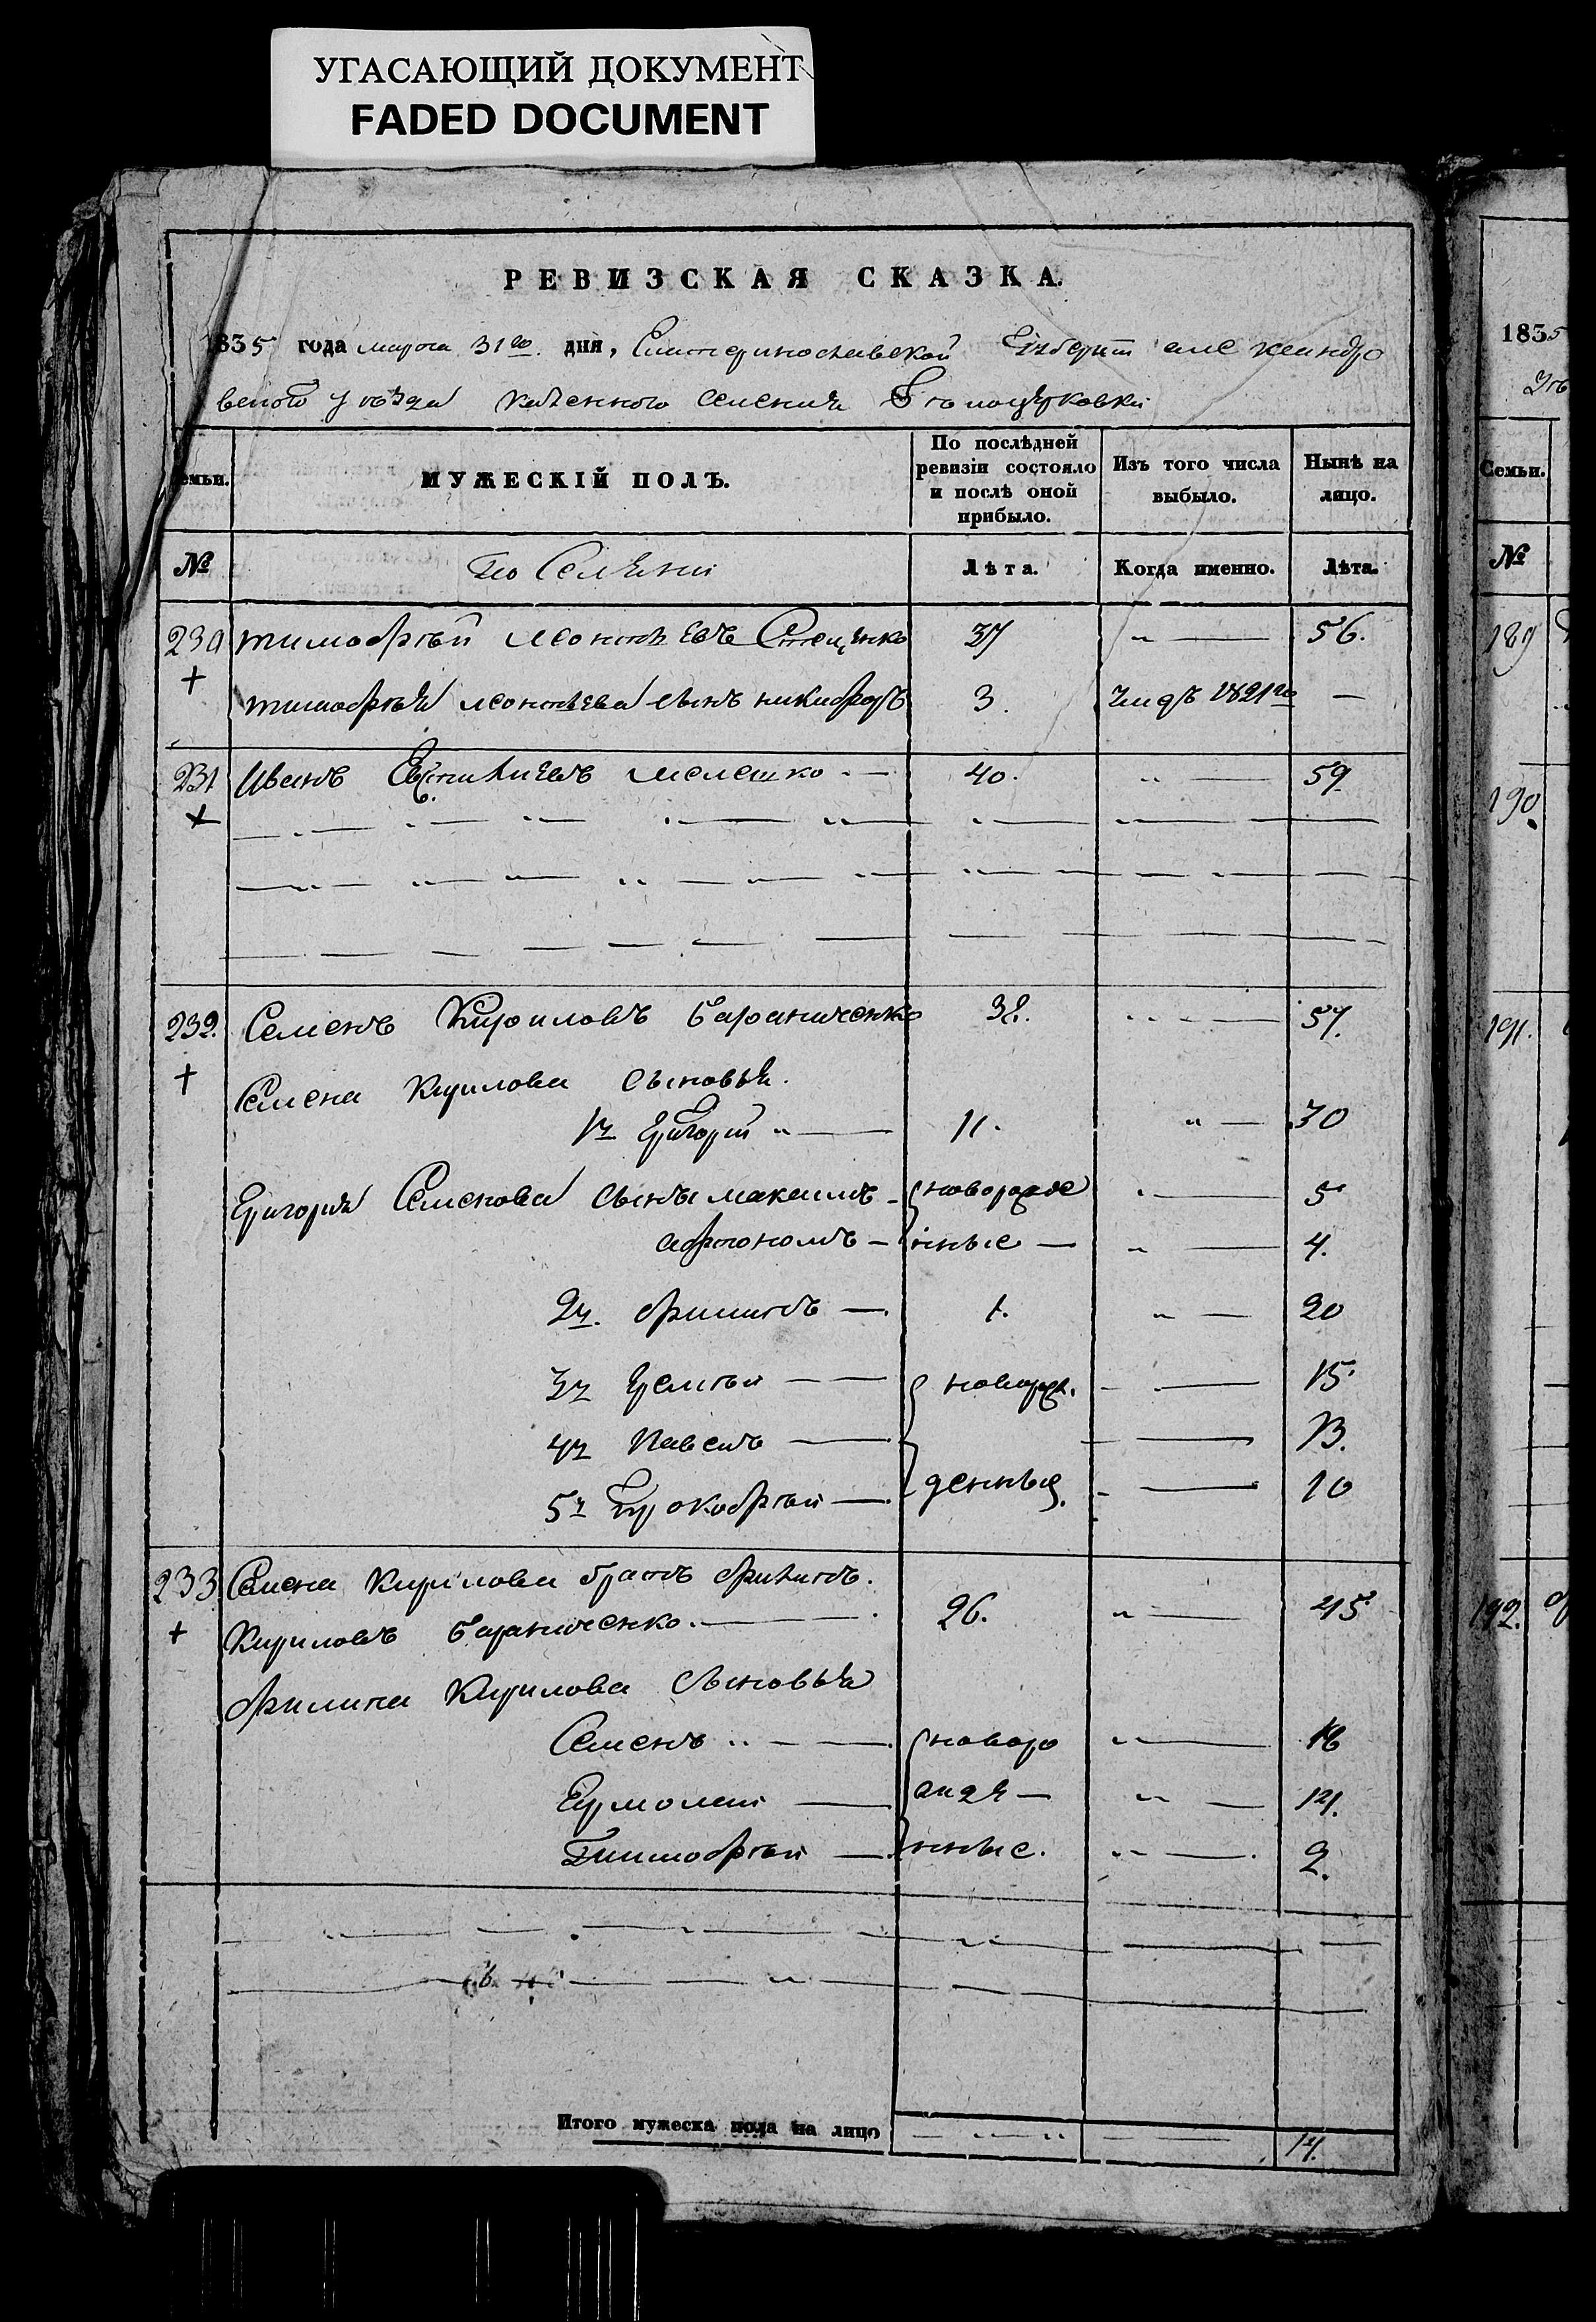 УГАСАЮЩИЙ ДОКУМЕНТ
FADED DOCUMENT
РЕВИЗСКАЯ СКАЗКА.
1835 года марта 31го дня, Екатеринославской Губерніи Александро
вского уѣзда казенного селения Бѣлоцерковки
Семьи.
МУЖЕСКІЙ ПОЛЪ.
По послѣдней ревизіи состояло и послѣ оной прибыло.
Изъ того числа выбыло.
Нынѣ на лицо.
№
Лѣта.
Когда именно.
Лѣта.
230 тимофѣй леонтьевъ Стеценко 37 56.
тимофѣя леонтьева сынъ никифоръ 3. 1821го
231 Иванъ мелешко 40. 59
232. Семенъ Кириловъ бараниченко 38. 57.
Семена Кирилова сыновья.
1й Григорий 11. 30
Григория Семенова сынъ максимъ новорожде 5
нные 4.
2й. филипъ 1. 20
3й новорож. 15
4й Павелъ 13.
5й Прокофѣй денныя. 10
233 Семена Кирилова братъ филипъ.
Кириловъ бараниченко. 26. 45
филипа Кирилова сыновья
Семенъ новоро 16
Ермолай жде 14.
Тимофѣй нные. 2.
Итого мужеска пола на лицо 14.
1835
Семьи.
№
189
190.
191.
192.